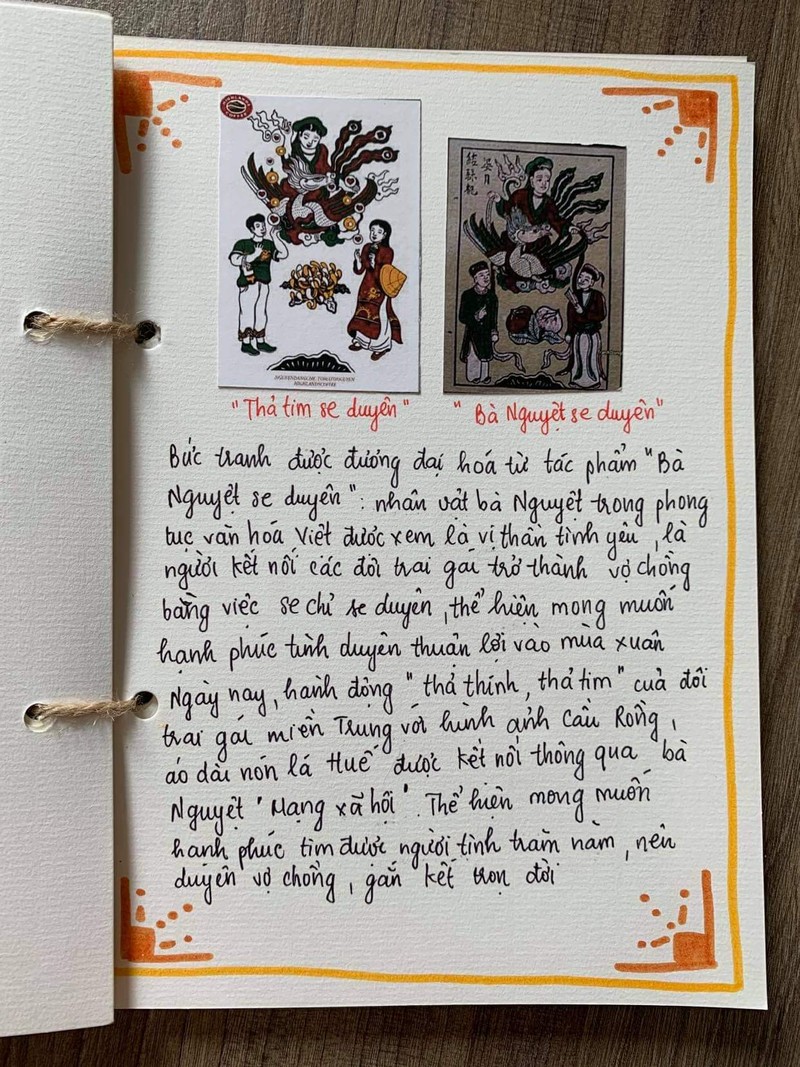 HIGHLANDS COFFEE
"Thả tim se duyên"
"Bà Nguyệt se duyên"
Bức tranh được đương đại hoá từ tác phẩm "Bà
Nguyệt se duyên": nhân vật bà Nguyệt trong phong
tục văn hoá Việt được xem là vị thần tình yêu, là
người kết nối các đôi trai gái trở thành vợ chồng
bằng việc se chỉ se duyên, thể hiện mong muốn
hạnh phúc tình duyên thuận lợi vào mùa xuân
Ngày nay, hành động "thả thính, thả tim" của đôi
trai gái miền Trung với hình ảnh Cầu Rồng,
áo dài nón lá Huế được kết nối thông qua bà
Nguyệt "Mạng xã hội". Thể hiện mong muốn
hạnh phúc tìm được người tình trăm năm, nên
duyên vợ chồng, gắn kết trọn đời